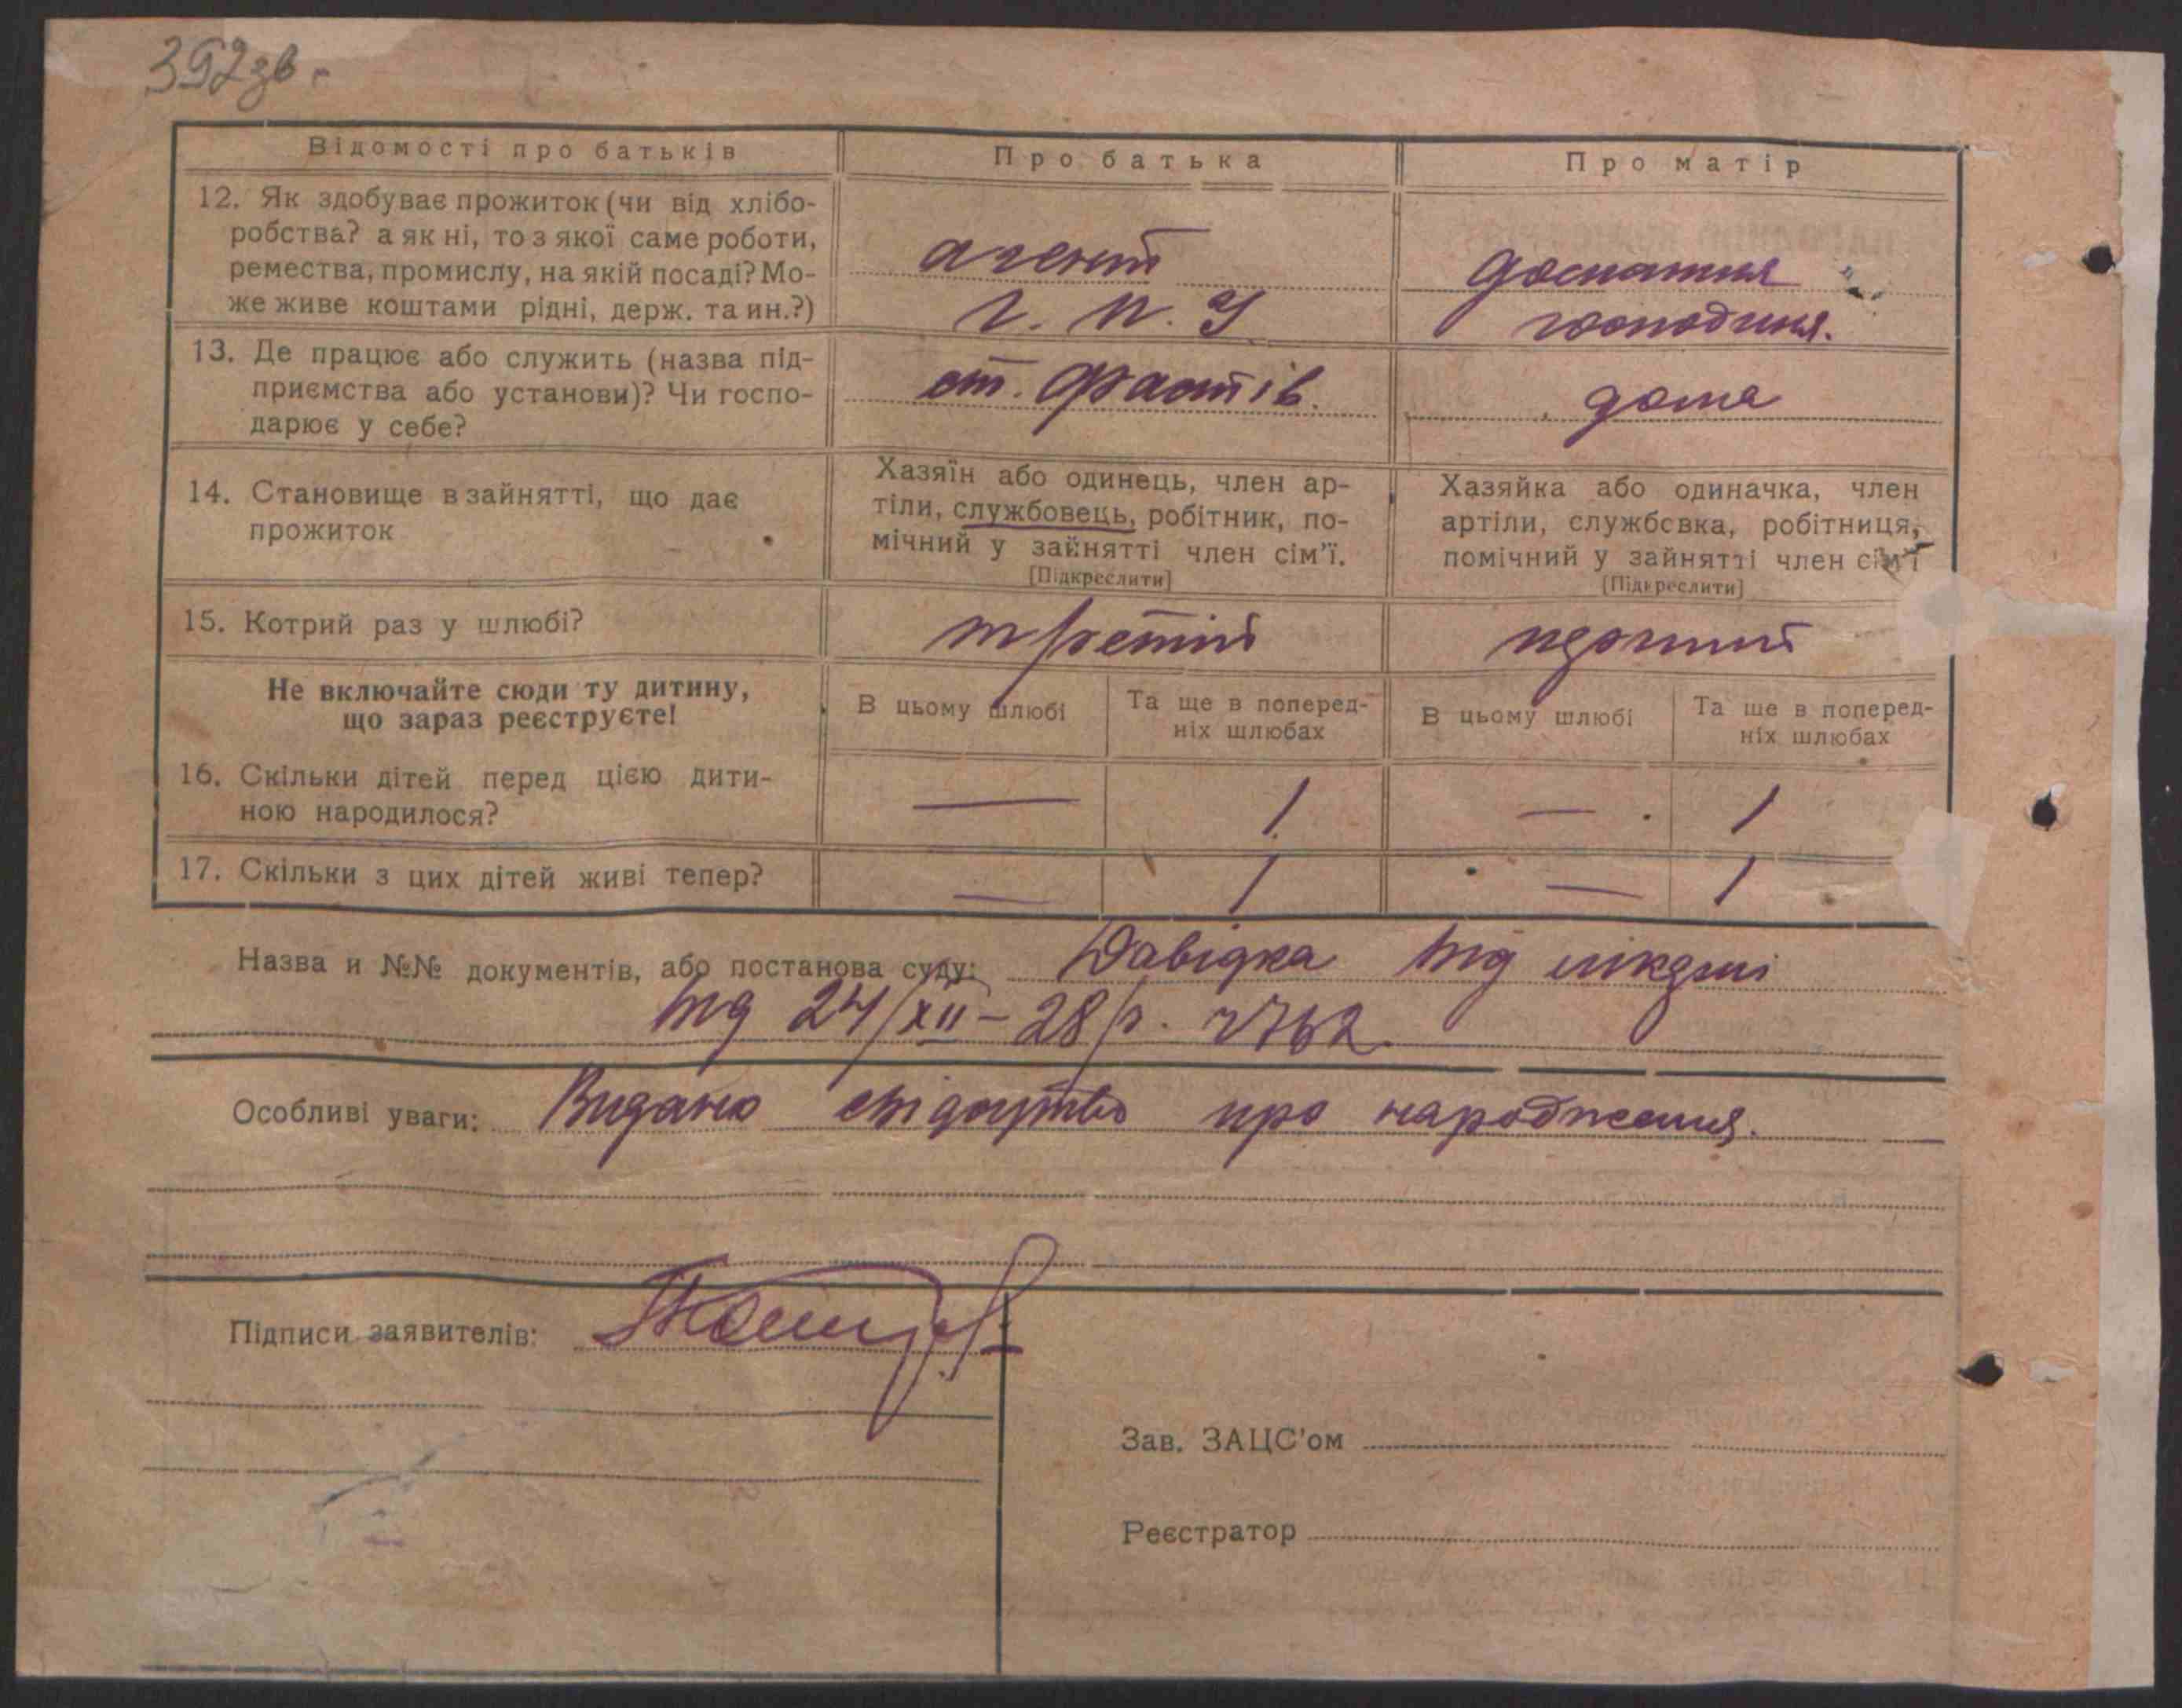 392зв.
Відомості про батьків
Про батька
Про матір
12. Як здобуває прожиток (чи від хлібо-
робства? а як ні, то з якої саме роботи,
ремества, промислу, на якій посаді? Мо-
же живе коштами рідні, держ. та ин.?)
агент
Г. П. У
домашня
господиня.
13. Де працює або служить (назва під-
приємства або установи)? Чи госпо-
дарює у себе?
ст. Фастів.
дома
14. Становище в зайнятті, що дає
прожиток
Хазяїн або одинець, член ар-
тіли, службовець, робітник, по-
мічний у зайнятті член сім'ї.
[Підкреслити]
Хазяйка або одиначка, член
артіли, службовка, робітниця,
помічний у зайнятті член сім'ї
[Підкреслити]
15. Котрий раз у шлюбі?
третій
Не включайте сюди ту дитину,
що зараз реєструєте!
В цьому шлюбі
Та ще в поперед-
ніх шлюбах
В цьому шлюбі
Та ще в поперед-
ніх шлюбах
16. Скільки дітей перед цією дити-
ною народилося?
— 1 — 1
17. Скільки з цих дітей живі тепер?
— 1 — 1
Назва и №№ документів, або постанова суду: Довідка від лікарні
від 24/XII–28 р.
Особливі уваги: Видано свідоцтво про народження.
Підписи заявителів:
Зав. ЗАЦС'ом
Реєстратор